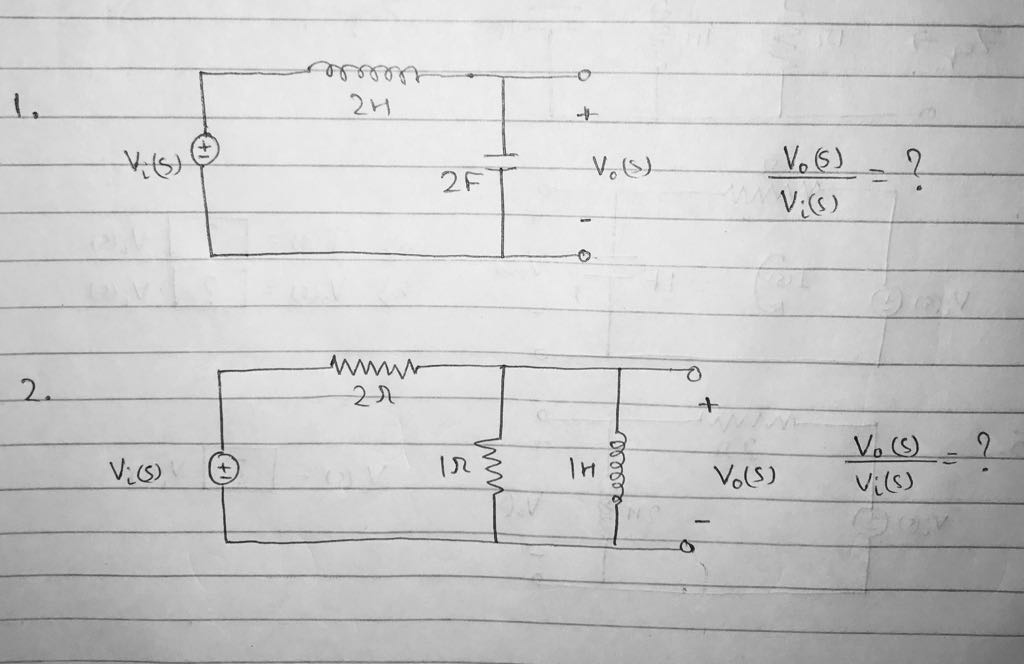 1.
2H
+
Vi(s)
2F
Vo(s)
Vo(s)
Vi(s)
= ?
-
2.
2Ω
+
Vi(s)
1Ω
1H
Vo(s)
Vo(s)
Vi(s)
= ?
-